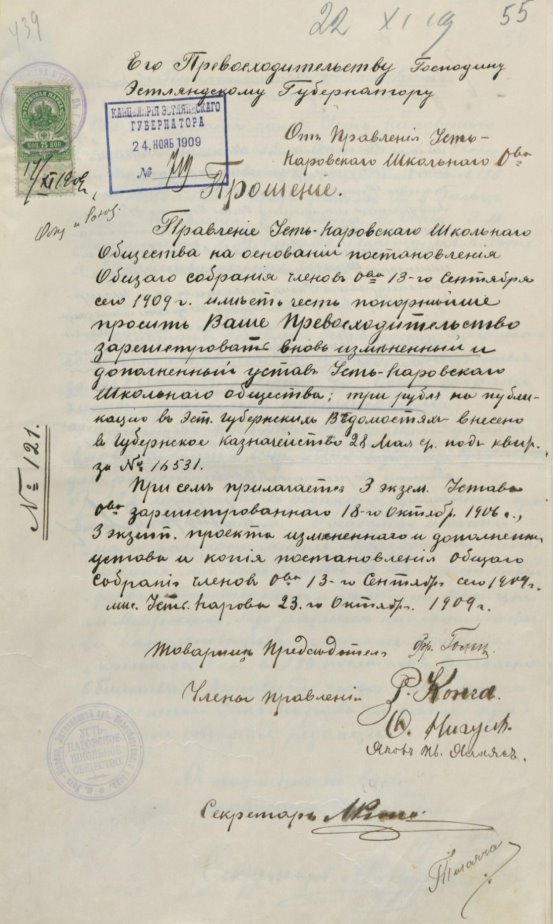 439
22 XI 19
55
КАНЦЕЛЯРІЯ ЭСТЛЯНДСКАГО
ГУБЕРНАТОРА
24. НОЯБ 1909
№ 719
75 КОП. 75
17/XI 1909 г.
Его Превосходительству Господину
Эстляндскому Губернатору
Отъ Правленія Усть-
Наровскаго Школьнаго О-ва
Прошеніе.
Правленіе Усть-Наровскаго Школьнаго
Общества на основаніи постановленія
Общаго собранія членовъ О-ва 13-го Сентября
сего 1909 г. имѣетъ честь покорнѣйше
просить Ваше Превосходительство
зарегистровать вновь измѣненный и
дополненный уставъ Усть-Наровскаго
Школьнаго общества; три рубля на публи-
кацію въ Эст. Губернскихъ Вѣдомостяхъ внесено
въ Губернское казначейство 28 Мая с.г. подъ квит.
за № 16531.
№ 121.
При семъ прилагается 3 экзем. Устава
О-ва зарегистрованнаго 18-го Октябр. 1906 г.,
3 экзем. проекта измѣненнаго и дополнен.
устава и копія постановленія общаго
собранія членовъ О-ва 13-го Сентябр. сего 1909 г.
мѣс. Усть-Нарова 23-го Октябр. 1909 г.
Товарищъ Предсѣдателя
Члены правленія
УСТЬ-
НАРОВСКОЕ
ШКОЛЬНОЕ
ОБЩЕСТВО
Секретарь